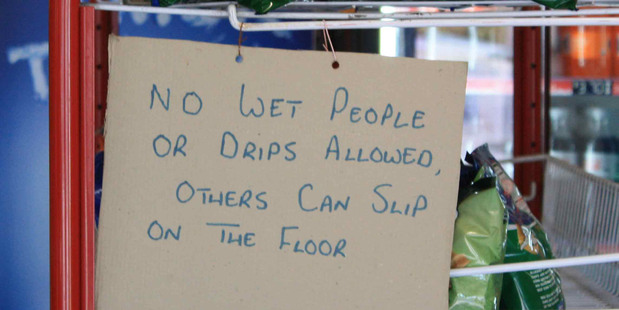 NO WET PEOPLE
OR DRIPS ALLOWED,
OTHERS CAN SLIP
ON THE FLOOR